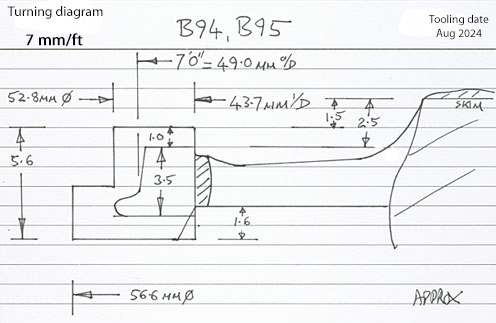 Turning diagram
7 mm/ft
B94, B95
Tooling date
Aug 2024
7'0" = 49.0 MM O/D
52.8 MM Ø
43.7 MM I/D
1.5
2.5
SKIM
1.0
5.6
3.5
1.6
56.6 MM Ø
APPROX